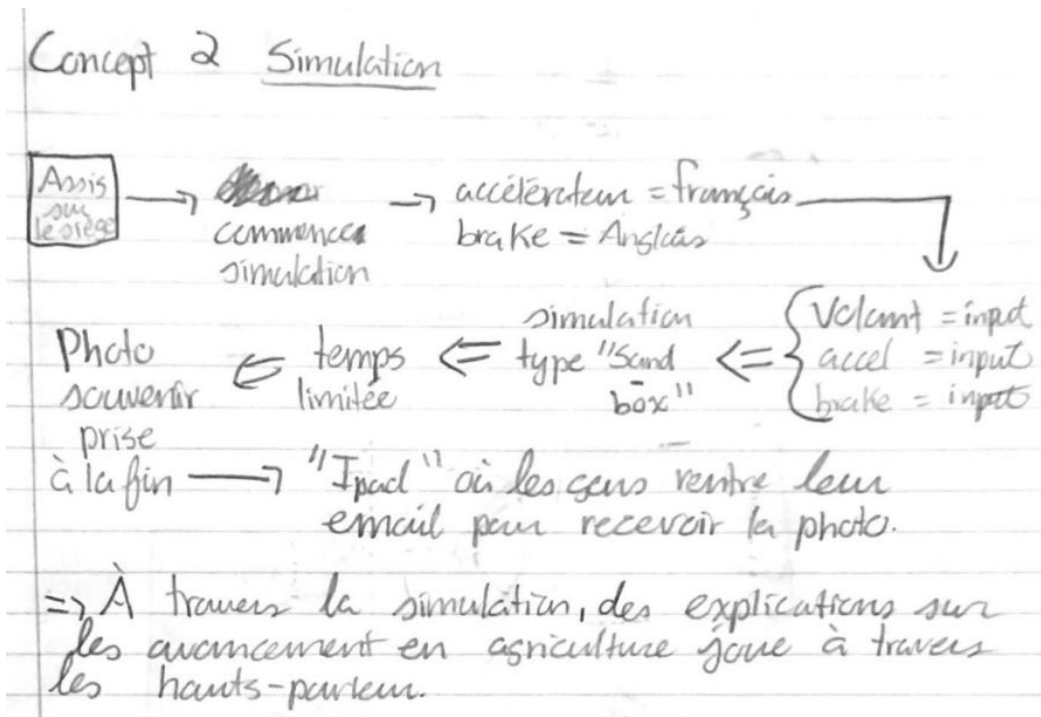 Concept 2 Simulation
Assis
sur
le siège
→
commencer
simulation
→ accélérateur = français
brake = Anglais
Volant = input
accel = input
brake = input
<=
simulation
type "Sand
box"
<= temps
limitée
<= Photo
souvenir
prise
à la fin → "Ipad" où les gens rentre leur
email pour recevoir la photo.
=> À travers la simulation, des explications sur
les avancement en agriculture joue à travers
les hauts-parleur.